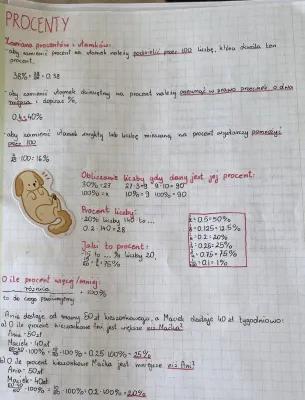 PROCENTY
Zamiana procentów i ułamków:
-aby zamienić procent na ułamek należy podzielić przez 100 liczbę, która określa ten
procent.
38% = 38/100 = 0.38
-aby zamienić ułamek dziesiętny na procent należy przesunąć w prawo przecinek o dwa
miejsca i dopisać %.
-aby zamienić ułamek zwykły lub liczbę mieszaną na procent wystarczy pomnożyć
przez 100
· 100 = 16%
Obliczanie liczby gdy dany jest jej procent:
30% = 27
100% = x
Procent liczby:
20% liczby 140 to ...
0.2 · 140 = 28
Jaki to procent:
15 to ... % liczby 20,
= 75%
= 0.5 = 50%
= 0.125 = 12.5%
= 0.2 = 20%
= 0.25 = 25%
= 0.75 = 75%
= 0.1 =
O ile procent więcej/mniej:
różnica · 100%
to do czego porównujemy
Ania dostaje od mamy 50zł kieszonkowego, a Maciek dostaje 40zł tygodniowo:
a) O ile procent kieszonkowe Ani jest większe niż Maćka?
Ania - 50zł
Maciek - 40zł
· 100% = 10/40 · 100% = 0.25 · 100% = 25%
b) O ile procent kieszonkowe Maćka jest mniejsze niż Ani?
Ania - 50zł
Maciek - 40zł
· 100% = 10/50 · 100% = 0.2 · 100% = 20%